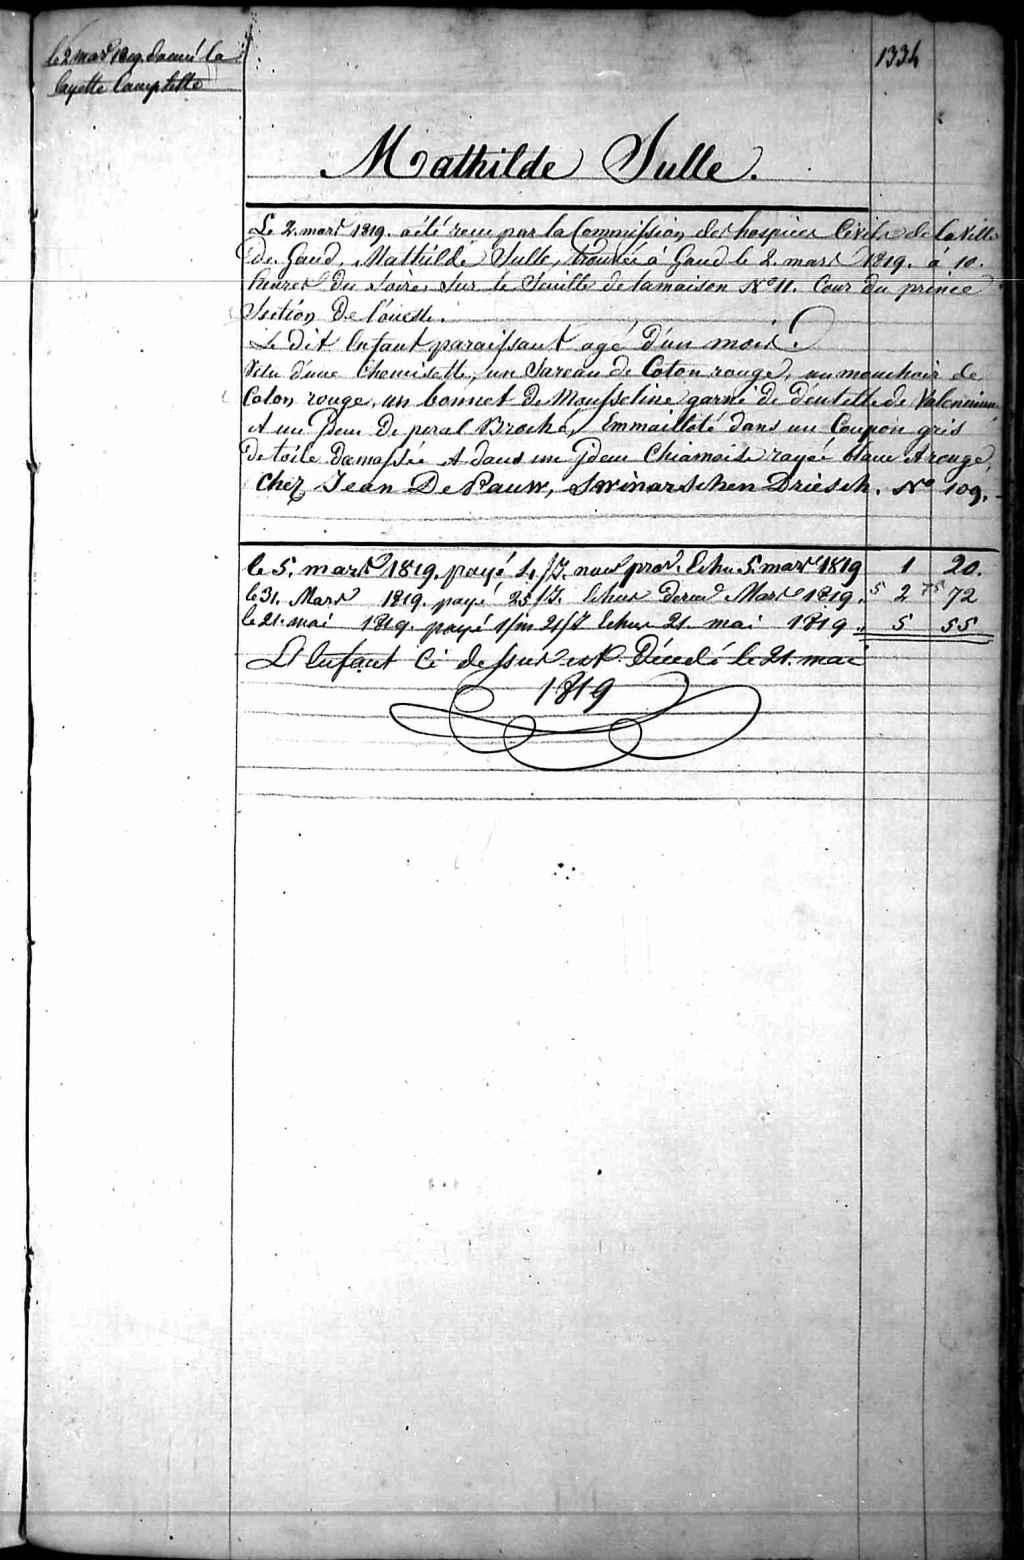 le 2 mars 1819. donné la
layette Complette
1334
Mathilde Sulle.
Le 2. mars 1819. a été recu par la Commission des hospices Civils de la Ville
de Gand, Mathilde Sulle, trouvée à Gand le 2. mars 1819. à 10.
heures du Soire, Sur le Seuille de la maison N° 11. Cour du prince
Section De l'ouest.
Le dit Enfant paraissant agé d'un mois.
Vetu d'une Chemisette, un Sareau de Coton rouge, un mouchoir de
Coton rouge, un bonnet de Mousseline garni de dentelle de Valencienn
et un de peral Broché, Emmailloté dans un Coupon gris
de toile Damassée et dans un Chiamoise rayée blanc et rouge,
Chez Jean De Pauw, Swinarschen Driesch. N° 109.
le 5. mars 1819. payé 4 /J. Echu 5. mars 1819 1 20.
le 31. Mars 1819. payé 25 /J. Echus Mars 1819. 5 2 75 72
le 21. mai 1819. payé 1/m 21/J Echus 21. mai 1819. 5 55
L'Enfant Ci dessus est Décedé le 21. mai
1819